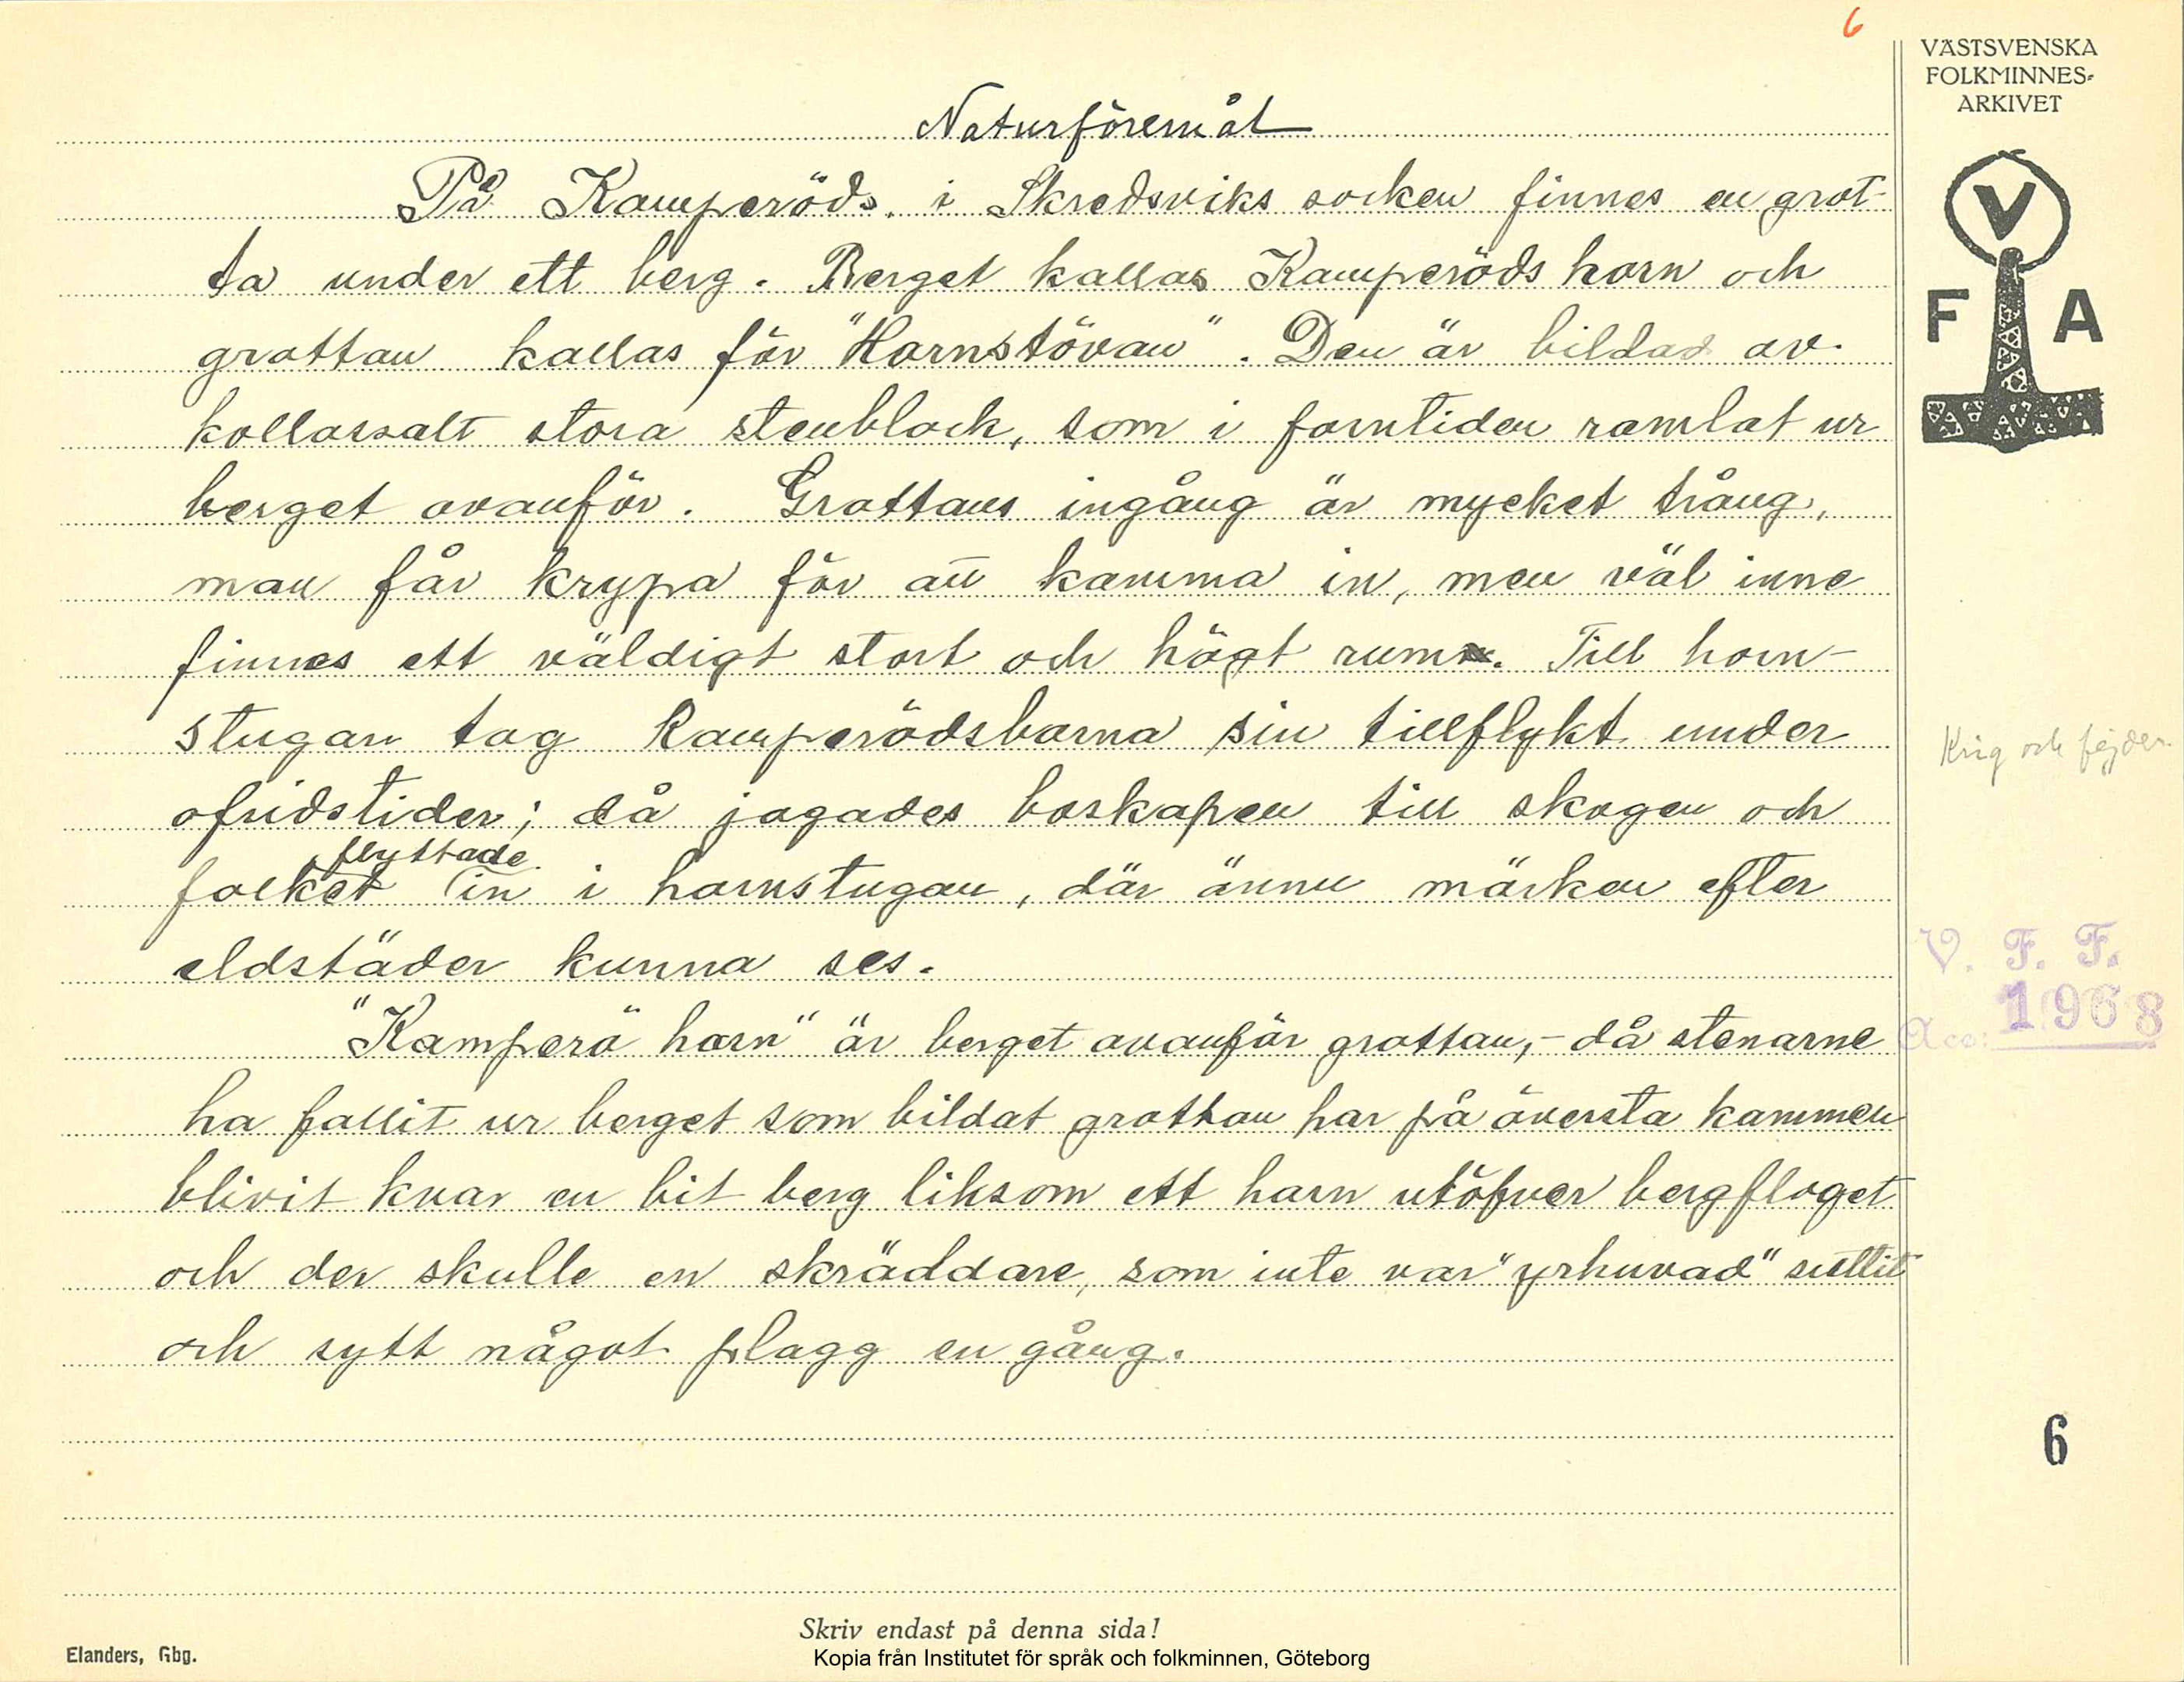 6
VÄSTSVENSKA
FOLKMINNES-
ARKIVET
V
F A
Naturföremål
På Kamperöds. i Skredsviks socken finnes en grot-
ta under ett berg. Berget kallas Kamperöds horn och
grottan kallas för "Hornstövan". Den är bildad av
kollossalt stora stenblock, som i forntiden ramlat ur
berget ovanför. Grottans ingång är mycket trång,
man får krypa för att komma in, men väl inne
finnes ett väldigt stort och högt rum. Till horn-
stugan tog Kamperödsborna sin tillflykt under
Krig och fejder.
ofridstider; då jagades boskapen till skogen och
flyttade
folket in i hornstugan, där ännu märken efter
eldstäder kunna ses.
V. F. F.
"Kamperö horn" är berget ovanför grottan,- då stenarne
Acc: 1968
ha fallit ur berget som bildat grottan har på översta kammen
blivit kvar en bit berg liksom ett horn utöfver bergfloget
och der skulle en skräddare, som inte var "yrhuvad" suttit
och sytt något plagg en gång.
6
Skriv endast på denna sida!
Elanders, Gbg.
Kopia från Institutet för språk och folkminnen, Göteborg